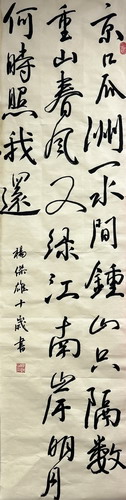 京口瓜洲一水間鍾山只隔數
重山春風又綠江南岸明月
何時照我還
楊保雄十歲書